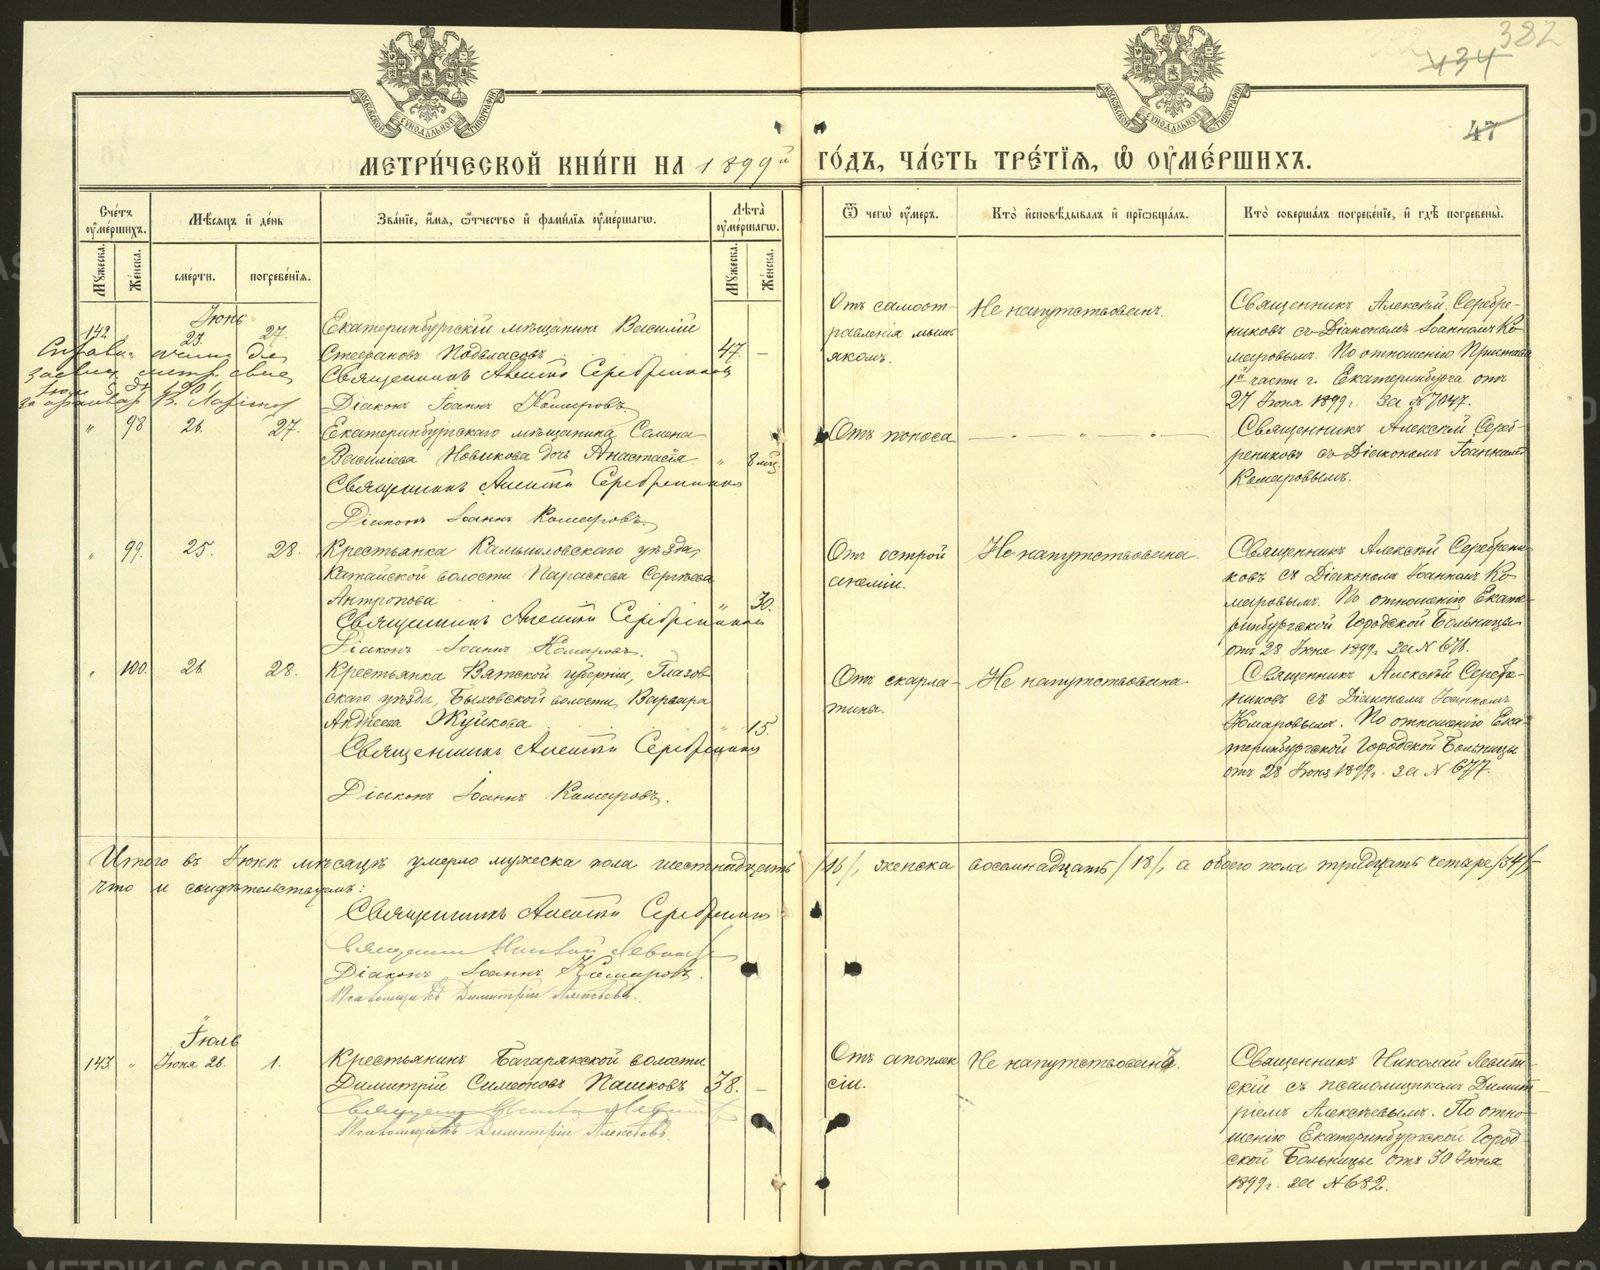 382
434
47
МЕТРИ́ЧЕСКОЙ КНИ́ГИ НА 1899й ГО́ДЪ, ЧА́СТЬ ТРЕ́ТІЯ, Ѡ҆ ОУ҆МЕ́РШИХЪ.
Сче́тъ оу҆ме́ршихъ.
Мѣ́сяцъ и҆ де́нь
Зва́нїе, и҆́мя, ѻ҆́тчество и҆ фами́лїя оу҆ме́ршагѡ.
Лѣта̀ оу҆ме́ршагѡ.
Ѿ чегѡ̀ оу҆́меръ.
Кто̀ и҆сповѣ́дывалъ и҆ прїѡбща́лъ.
Кто̀ соверша́лъ погребе́нїе, и҆ гдѣ̀ погребены̀.
Му́жеска.
Же́нска.
сме́рти.
погребе́нїя.
Му́жеска.
Же́нска.
Іюнь
142.
23.
27.
Екатеринбургскій мѣщанинъ Василій
Стефановъ Подвласовъ
47.
—
Священникъ Алексѣй Серебренниковъ
Діаконъ Іоаннъ Комаровъ
Отъ самоот-
равленія мышь
якомъ.
Не напутствованъ.
Священникъ Алексѣй Серебре-
никовъ съ Діакономъ Іоанномъ Ко
маровымъ. По отношенію Пристава
1й части г. Екатеринбурга отъ
27 Іюня 1899г. за №7047.
"
98
26.
27.
Екатеринбургскаго мѣщанина Семена
Василіева Новикова дочь Анастасія.
"
8 мѣс.
Священникъ Алексѣй Серебренниковъ
Діаконъ Іоаннъ Комаровъ
Отъ поноса
Священникъ Алексѣй Сереб-
рениковъ съ Діакономъ Іоанномъ
Комаровымъ.
"
99.
25.
28.
Крестьянка Камышловскаго уѣзда,
Катайской волости Параскева Сергѣева
Антропова
"
30.
Священникъ Алексѣй Серебренниковъ
Діаконъ Іоаннъ Комаровъ.
Отъ острой
анеміи.
Не напутствована.
Священникъ Алексѣй Серебрени
ковъ съ Діакономъ Іоанномъ Ко
маровымъ. По отношенію Екате-
ринбургской Городской Больницы
отъ 28 Іюня 1899г. за №678.
"
100.
26.
28.
Крестьянка Вятской губерніи, Глазов
скаго уѣзда, Быховской волости, Варвара
Андреева Жуйкова
"
15.
Священникъ Алексѣй Серебренниковъ
Діаконъ Іоаннъ Комаровъ.
Отъ скарла-
тины.
Не напутствована
Священникъ Алексѣй Серебре-
никовъ съ Діакономъ Іоанномъ
Комаровымъ. По отношенію Ека-
теринбургской Городской Больницы
отъ 28 Іюня 1899г. за № 677.
Итого въ Іюнѣ мѣсяцѣ умерло мужеска пола шестнадцать /16/, женска восемнадцать /18/, а обоего пола тридцать четыре /34/
что и свидѣтельствуемъ:
Священникъ Алексѣй Серебренниковъ
Священникъ Николай Левитскій
Діаконъ Іоаннъ Комаровъ.
Псаломщикъ Димитрій Алексѣевъ.
Іюль
143.
"
Іюня 26.
1.
Крестьянинъ Багарякской волости
Димитрій Симеоновъ Пашковъ
38.
—
Священникъ Николай Левитскій
Псаломщикъ Димитрій Алексѣевъ.
Отъ апоплек
сіи.
Не напутствованъ.
Священникъ Николай Левит-
скій съ псаломщикомъ Димит-
ріемъ Алексѣевымъ. По отно-
шенію Екатеринбургской Город-
ской Больницы отъ 30 Іюня
1899г. за №682.